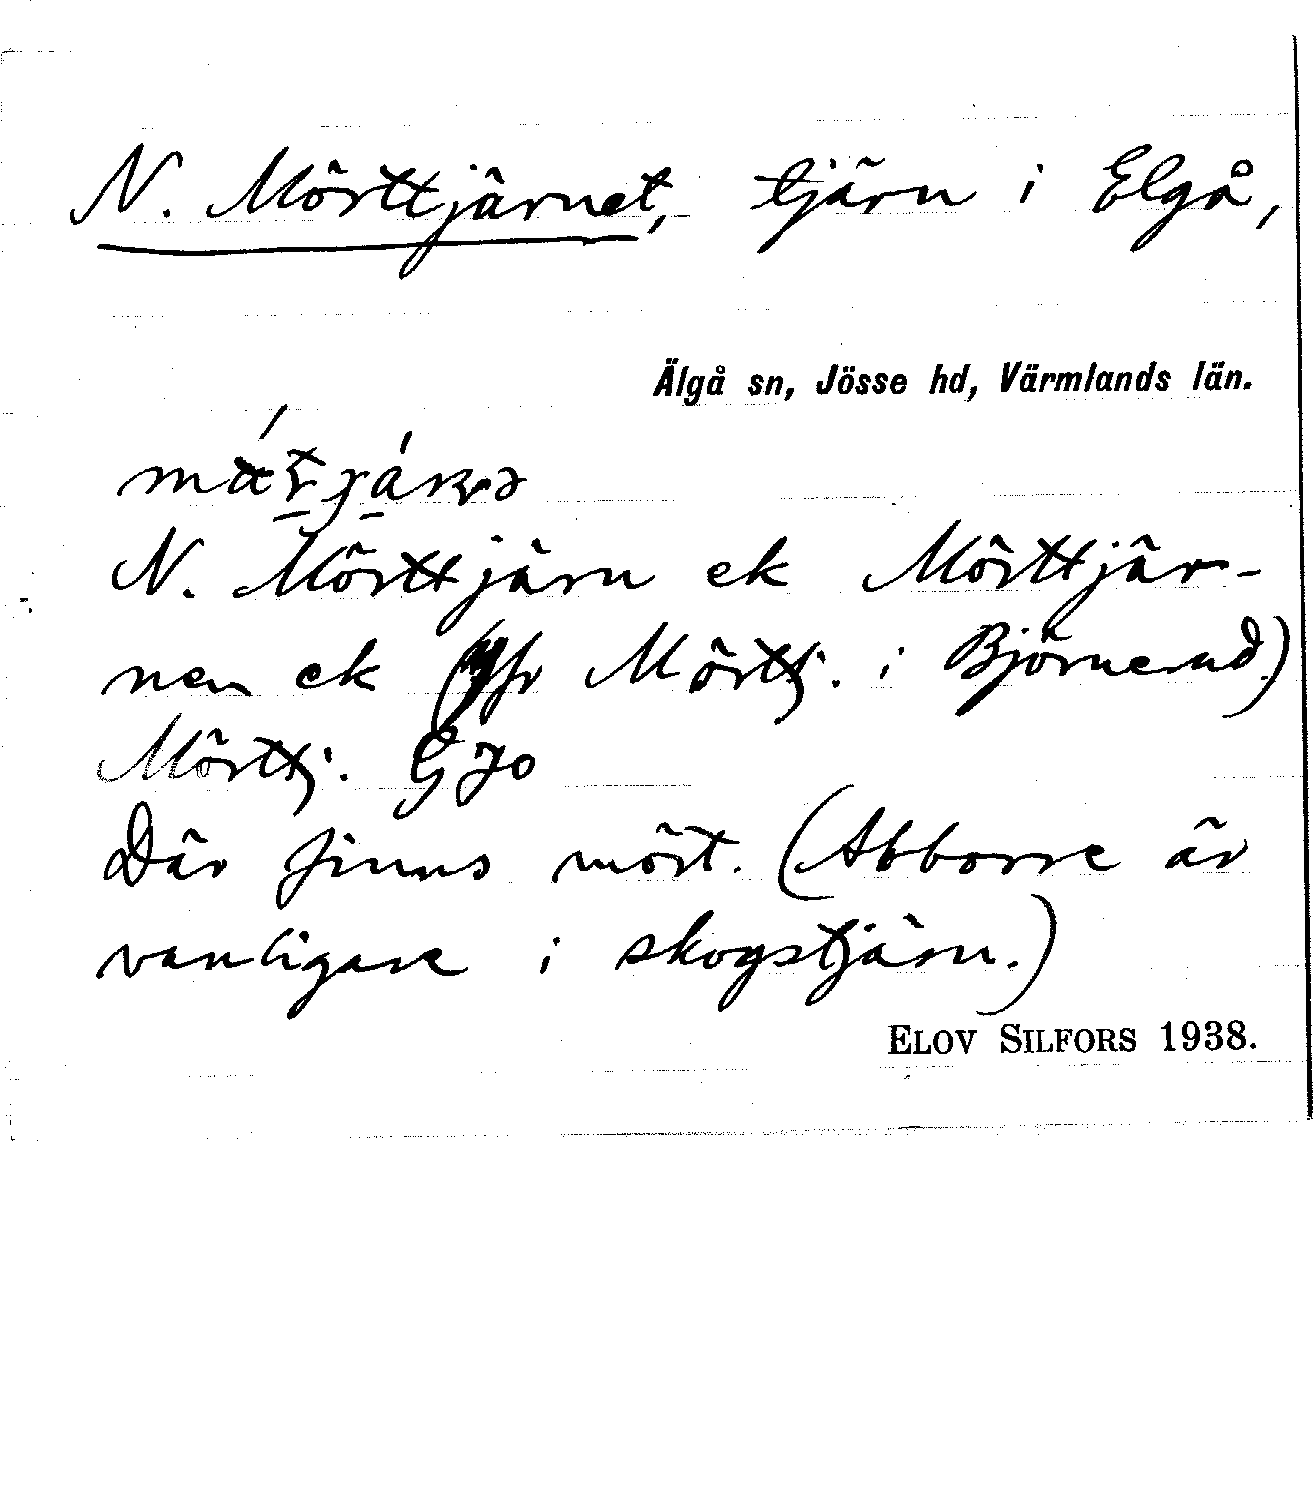 N. Mörttjärnet, tjärn i Elgå,
Älgå sn, Jösse hd, Värmlands län.
N. Mörttjärn ek Mörttjär-
nen ek (Jfr Mörttj. i Björnerud.)
Mörttj. GJo
Där finns mört. (Abborre är
vanligare i skogstjärn.)
ELOV SILFORS 1938.